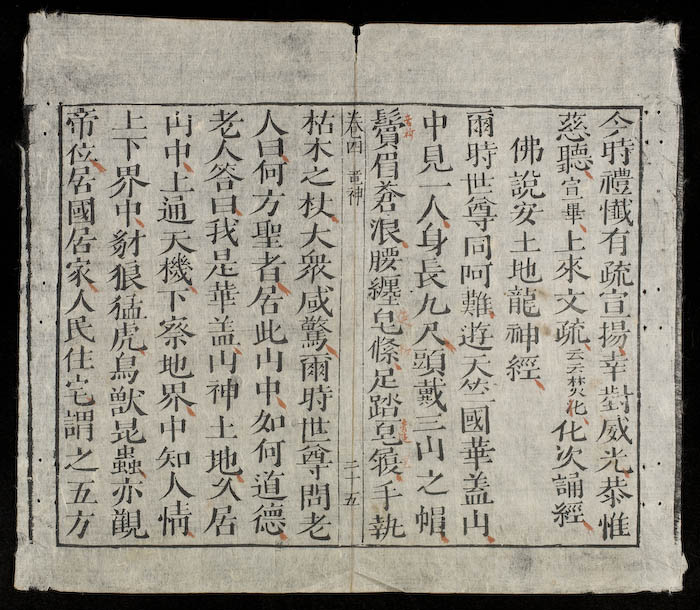 今時禮懺有疏宣揚幸對威光恭惟
慈聽宣畢上來文疏云云焚化化次誦經
佛說安土地龍神經
爾時世尊同阿難遊天竺國華盖山
中見一人身長九尺頭戴三山之帽
鬢眉蒼浪腰纏皂絛足踏皂靴手執
卷四 竜神 三十五
枯木之杖大衆咸驚爾時世尊問老
人曰何方聖者居此山中如何道德
老人答曰我是華盖山神土地久居
山中上通天機下察地界中知人情
上下界中豺狼猛虎鳥獸昆蟲亦觀
帝位居國居家人民住宅謂之五方